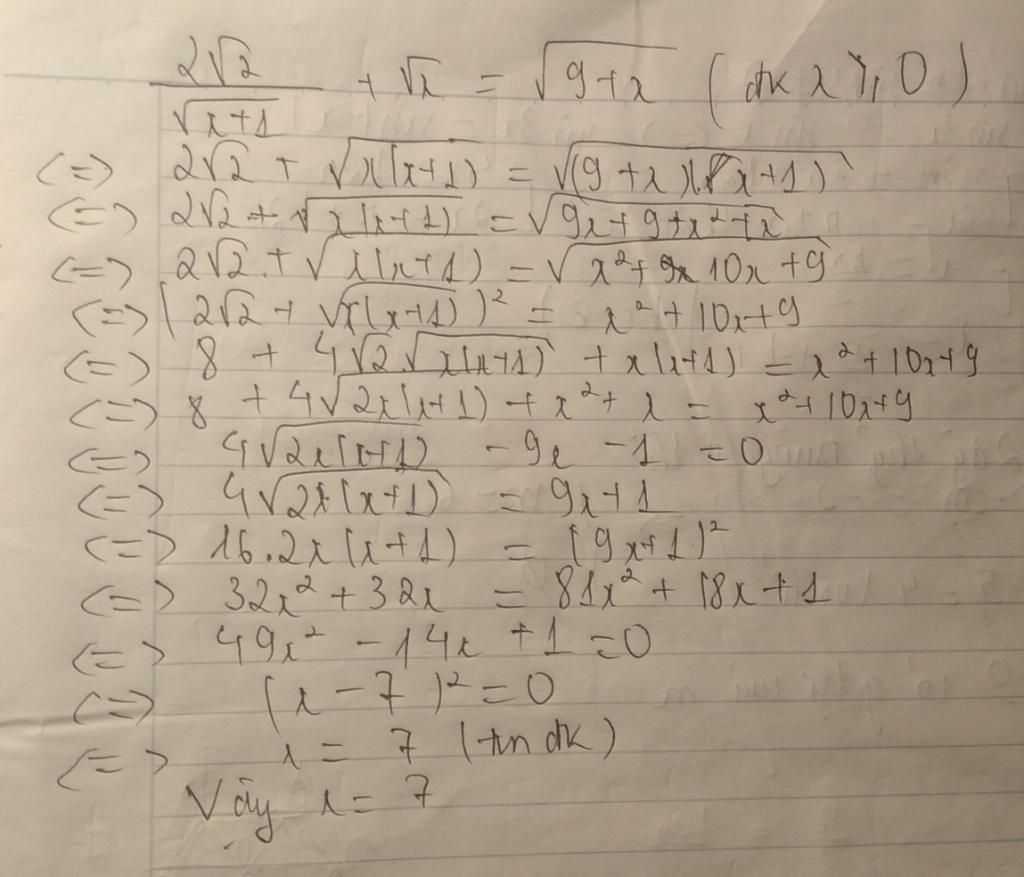 2√2/√(x+1) + √x = √(9+x) (đk x ≥ 0)
<=> 2√2 + √(x(x+1)) = √((9+x)(x+1))
<=> 2√2 + √(x(x+1)) = √(9x+9+x²+x)
<=> 2√2 + √(x(x+1)) = √(x²+10x+9)
<=> (2√2 + √(x(x+1)))² = x²+10x+9
<=> 8 + 4√2√(x(x+1)) + x(x+1) = x²+10x+9
<=> 8 + 4√(2x(x+1)) + x²+x = x²+10x+9
<=> 4√(2x(x+1)) - 9x - 1 = 0
<=> 4√(2x(x+1)) = 9x+1
<=> 16.2x(x+1) = (9x+1)²
<=> 32x²+32x = 81x²+18x+1
<=> 49x² - 14x + 1 = 0
<=> (x - 7)² = 0
<=> x = 7 (tm đk)
Vậy x = 7